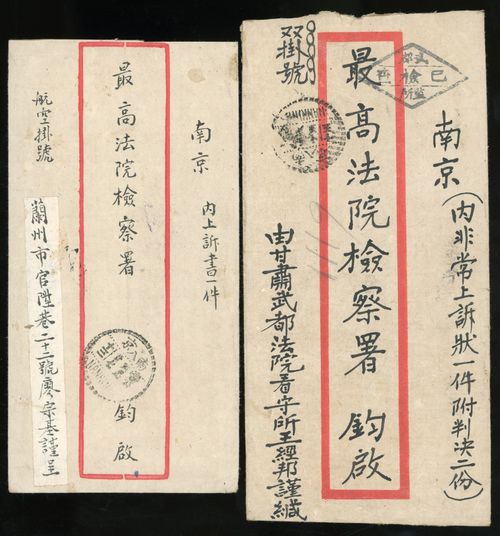 南京 內上訴書一件
最高法院檢察署 鈞啟
航空掛號
蘭州市官陞巷二十二號廖宗基謹呈
南京(內非常上訴狀一件附判決二份)
最高法院檢察署 鈞啟
双掛號
由甘肅武都法院看守所王經邦謹緘